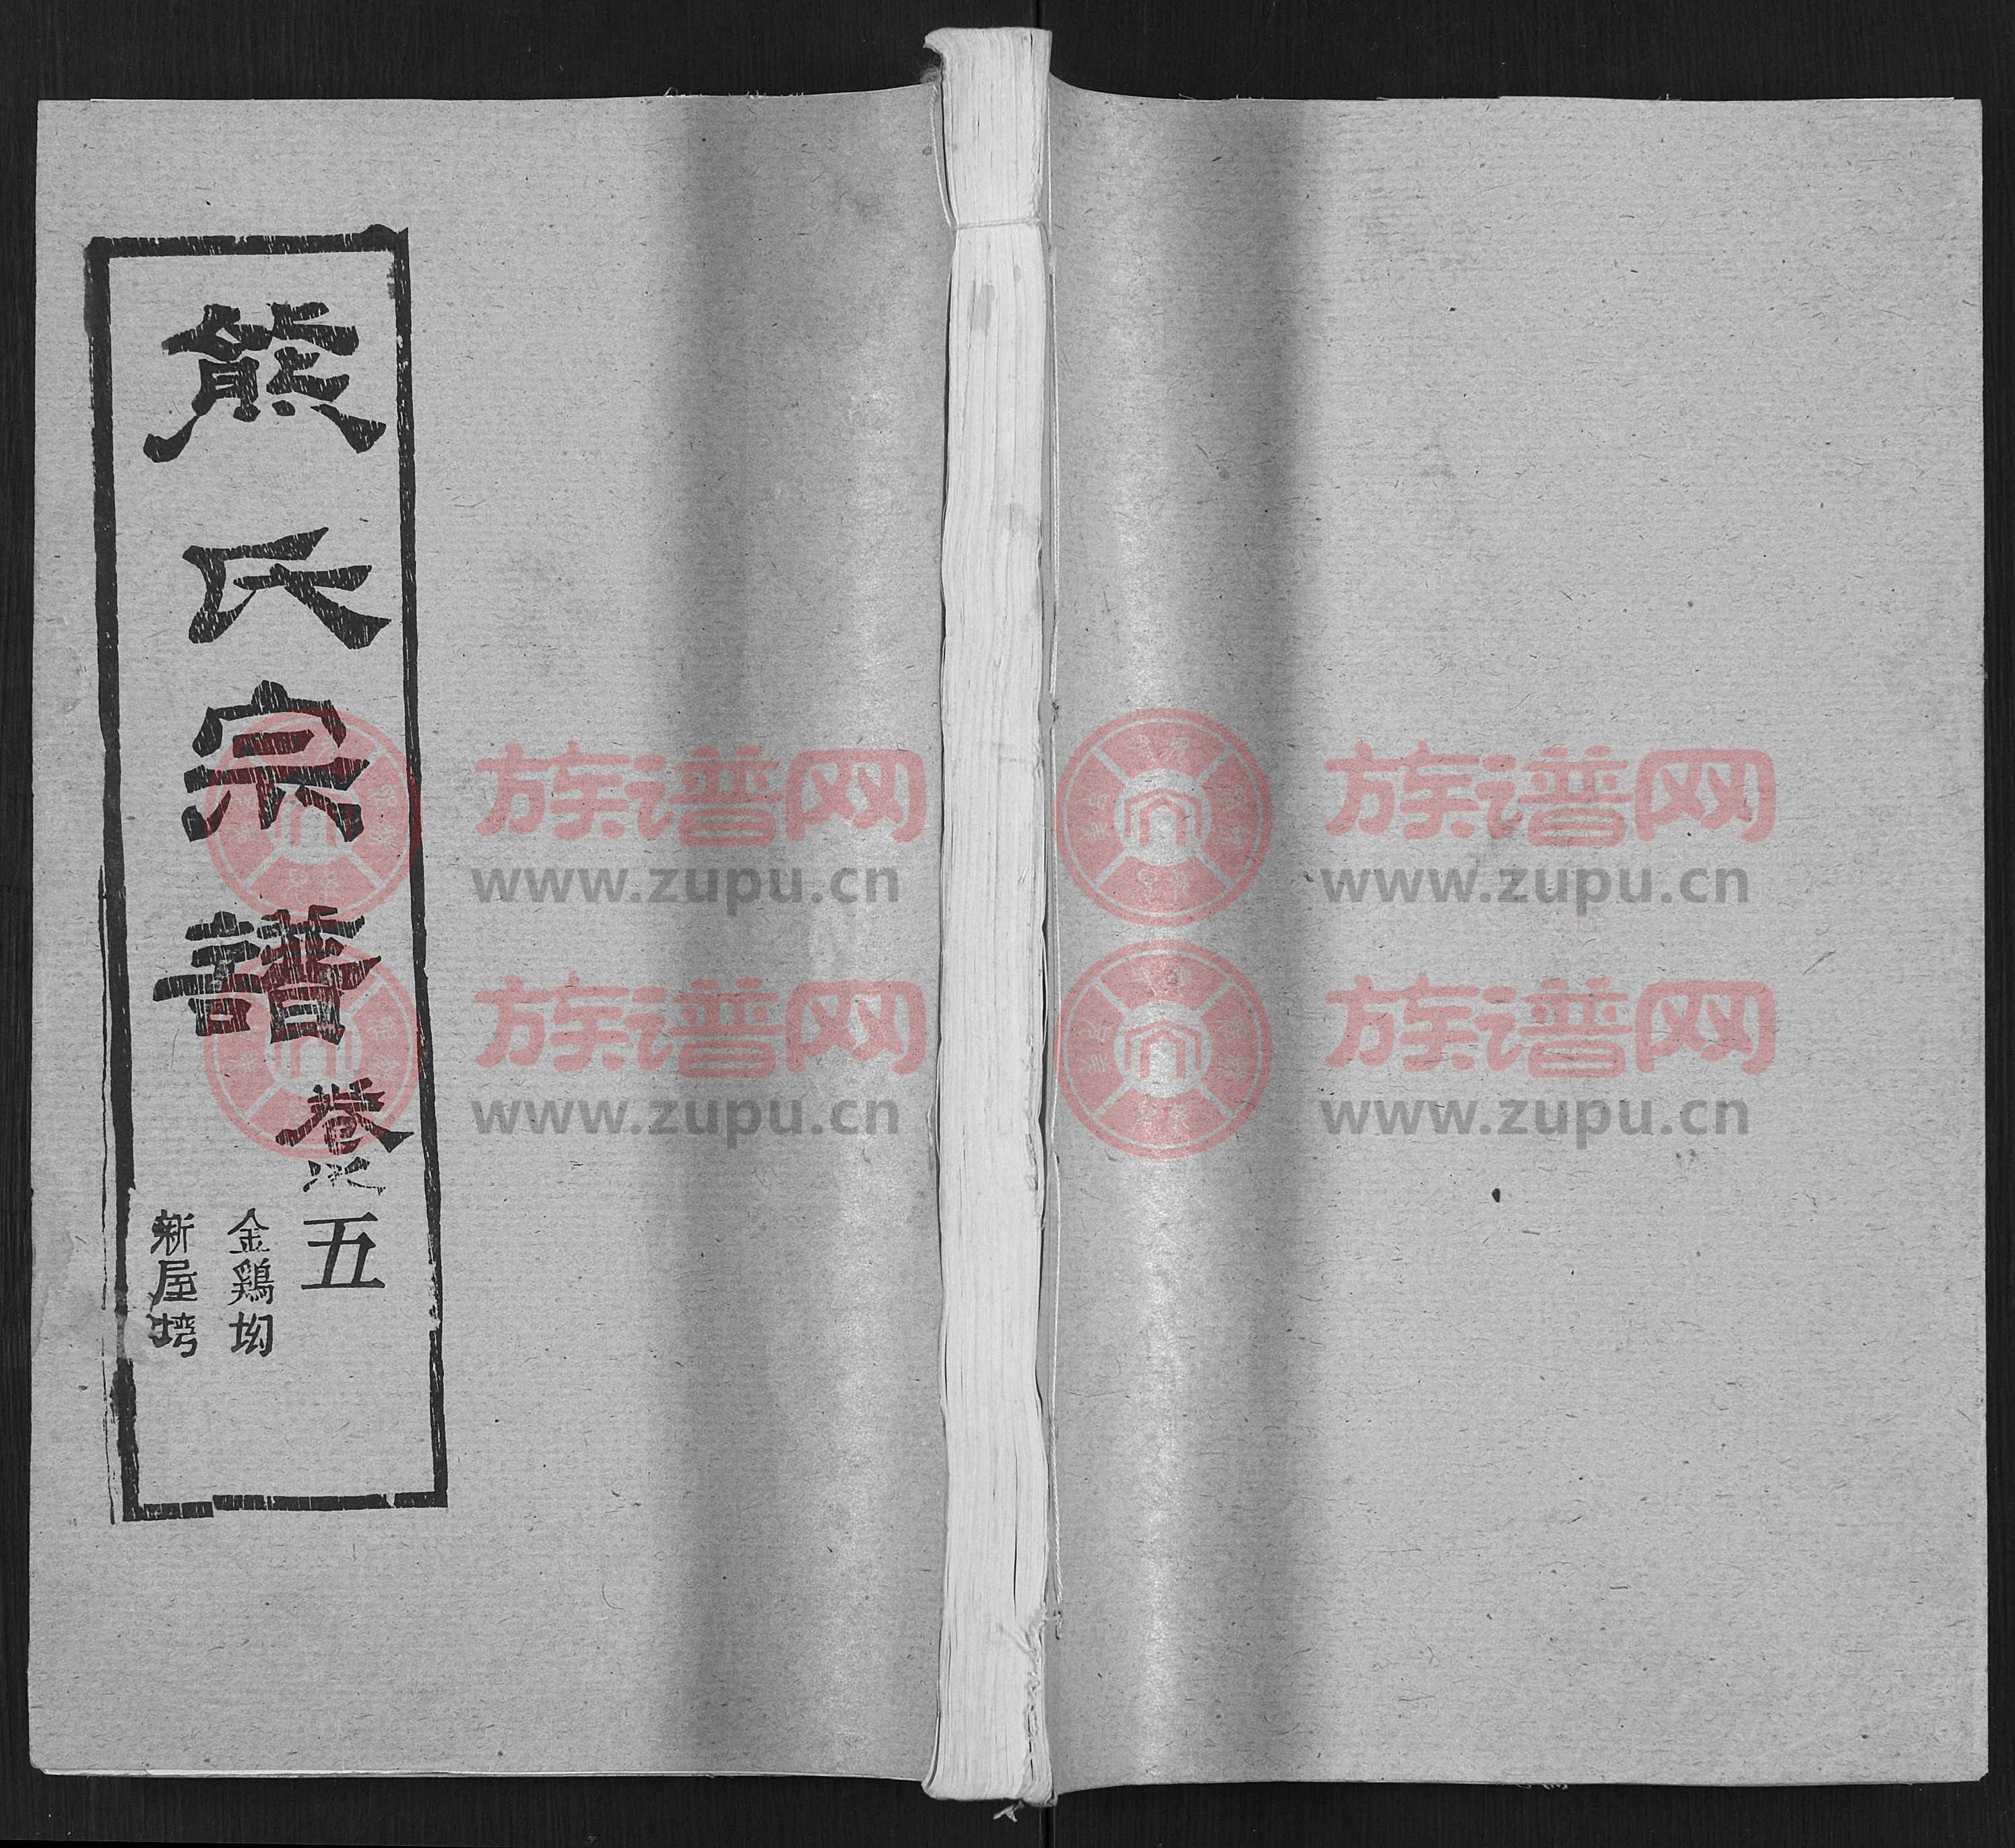 熊氏宗譜
卷五
金鷄坳
新屋塆
族谱网
www.zupu.cn
族谱网
www.zupu.cn
族谱网
www.zupu.cn
族谱网
www.zupu.cn